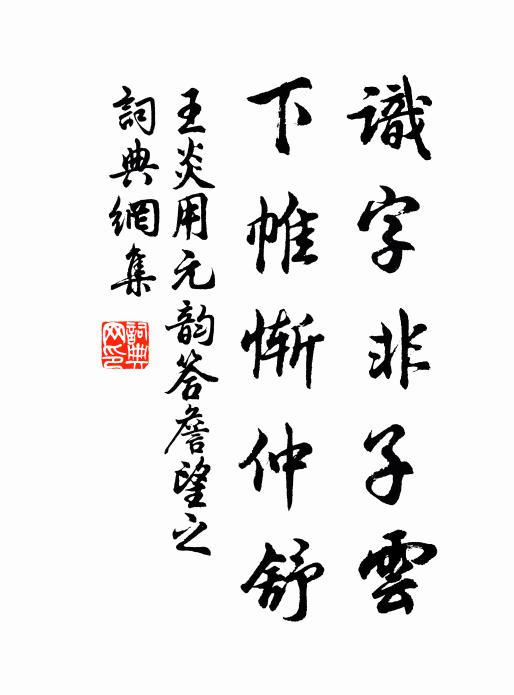 識字非子雲
下帷慚仲舒
王炎用元韵答詹望之
詞典網集
詞典網印